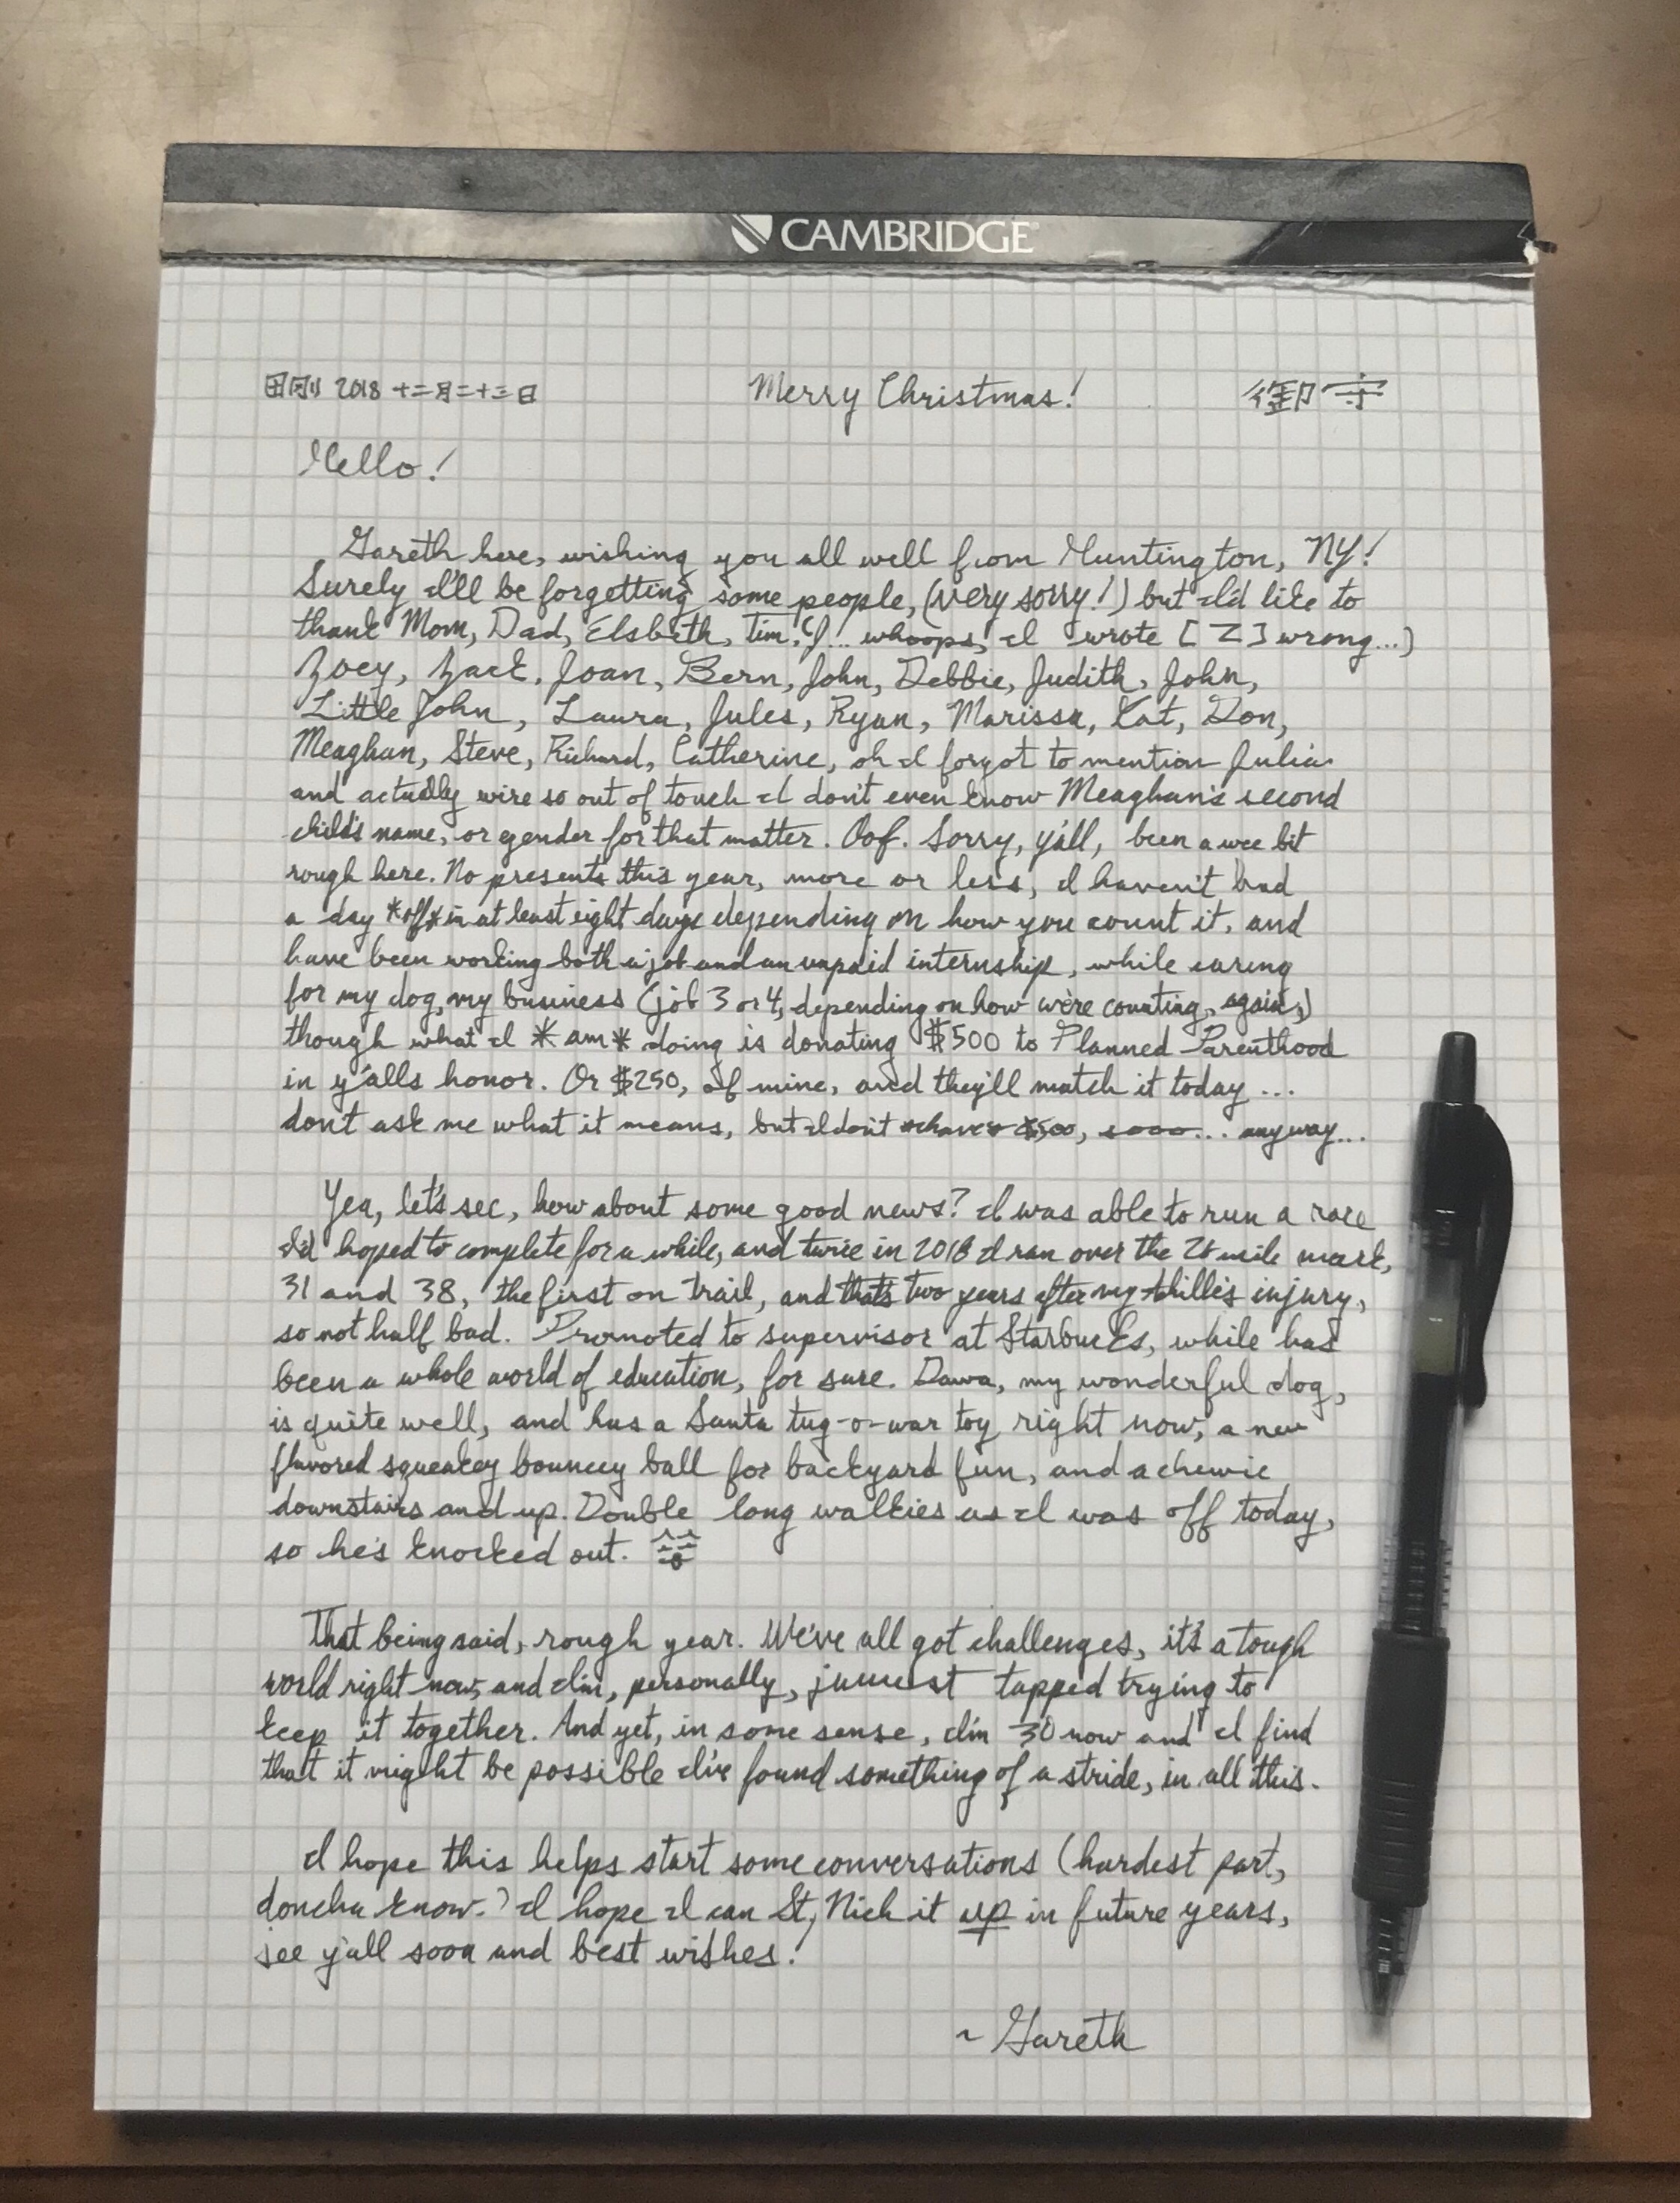 CAMBRIDGE
田刚 2018 十二月二十三日 Merry Christmas! 御守
Hello!
Gareth here, wishing you all well from Huntington, NY!
Surely I'll be forgetting some people, (very sorry!) but I'd like to
thank Mom, Dad, Elsbeth, Tim, (J... whoops, I wrote [Z] wrong...)
Zoey, Zack, Joan, Bern, John, Debbie, Judith, John,
Little John, Laura, Jules, Ryan, Marissa, Kat, Don,
Meaghan, Steve, Richard, Catherine, oh I forgot to mention Julia
and actually we're so out of touch I don't even know Meaghan's second
child's name, or gender for that matter. Oof. Sorry, y'all, been a wee bit
rough here. No presents this year, more or less, I haven't had
a day *off* in at least eight days depending on how you count it, and
have been working both a job and an unpaid internship, while caring
for my dog, my business (job 3 or 4, depending on how we're counting, again,)
though what I *am* doing is donating $500 to Planned Parenthood
in y'alls honor. Or $250, of mine, and they'll match it today ...
don't ask me what it means, but I don't *have* $500, soooo... anyway...
Yea, let's see, how about some good news? I was able to run a race
I'd hoped to complete for a while, and twice in 2018 I ran over the 26 mile mark,
31 and 38, the first on trail, and that's two years after my Achilles injury,
so not half bad. Promoted to supervisor at Starbucks, while has
been a whole world of education, for sure. Dawa, my wonderful dog,
is quite well, and has a Santa tug-o-war toy right now, a new
flavored squeakey bouncey ball for backyard fun, and a chewie
downstairs and up. Double long walkies as I was off today,
so he's knocked out.
That being said, rough year. We've all got challenges, it's a tough
world right now, and I'm, personally, juuuust tapped trying to
keep it together. And yet, in some sense, I'm 30 now and I find
that it might be possible I've found something of a stride, in all this.
I hope this helps start some conversations (hardest part,
doncha know?) I hope I can St, Nick it up in future years,
see y'all soon and best wishes!
~ Gareth